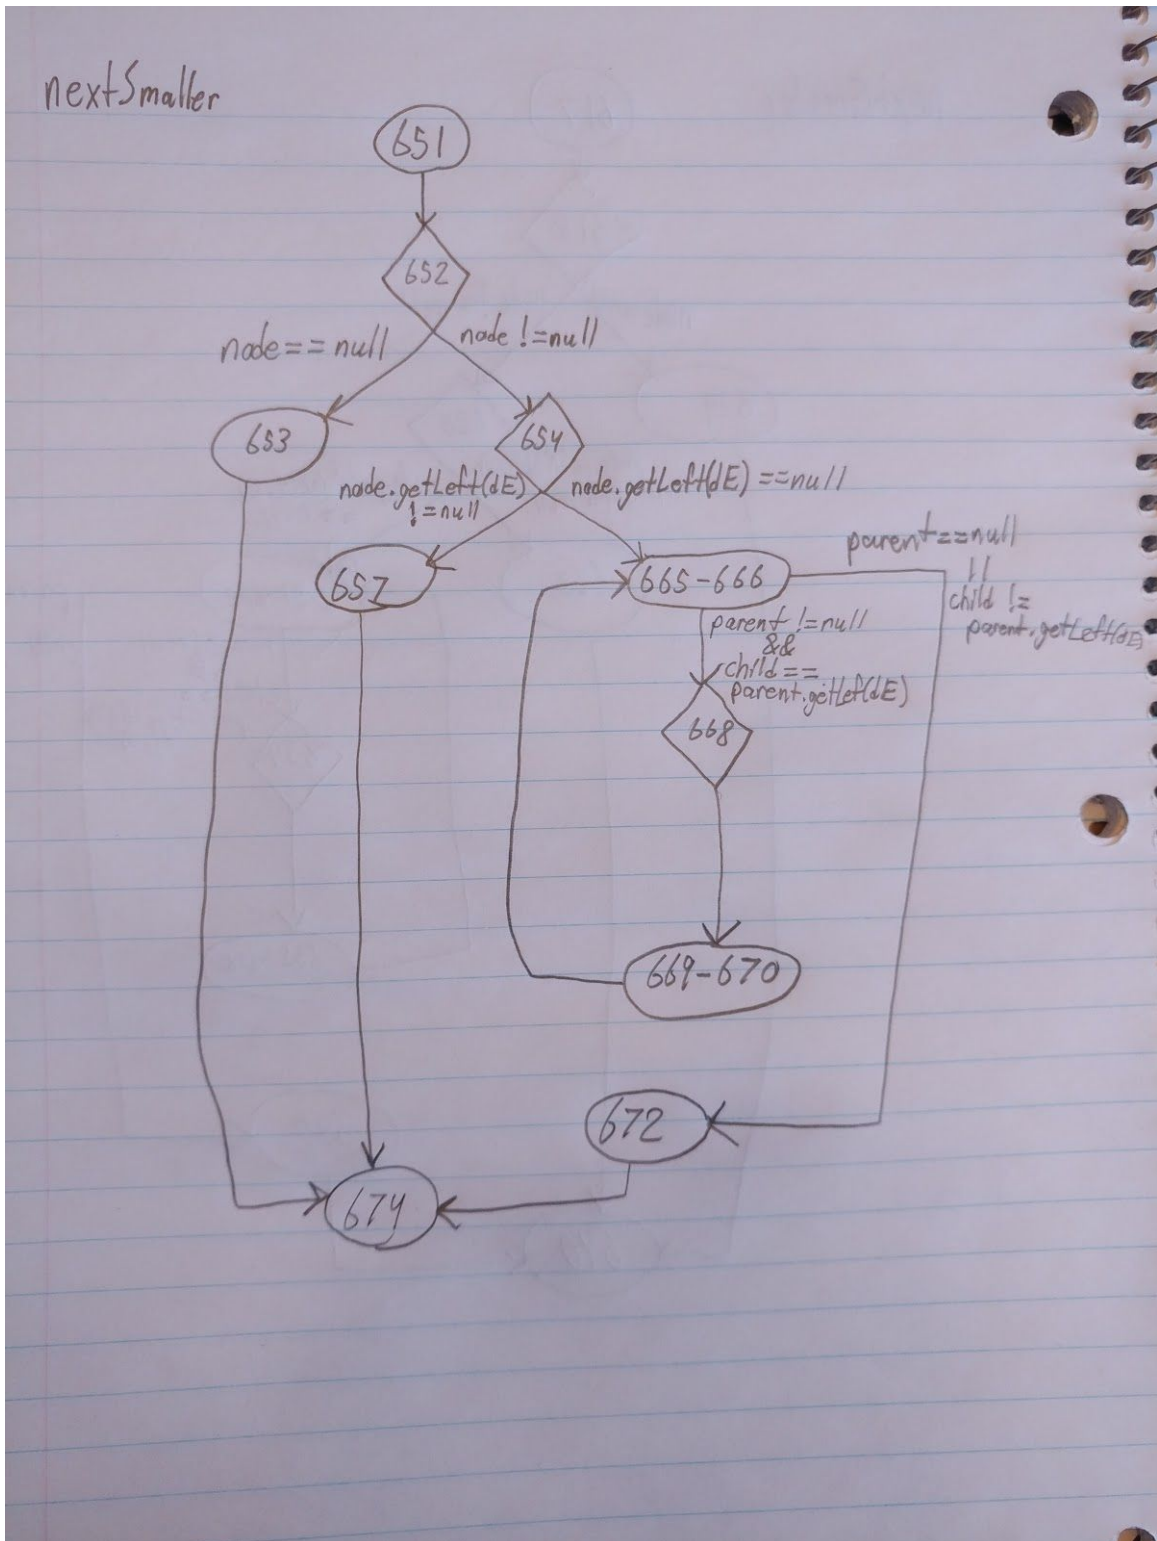 nextSmaller
651
652
node==null
node !=null
653
654
node.getLeft(dE)
!=null
node.getLeft(dE) ==null
657
665-666
parent==null
||
child !=
parent.getLeft(dE)
parent !=null
&&
child==
parent.getLef(dE)
668
669-670
672
674